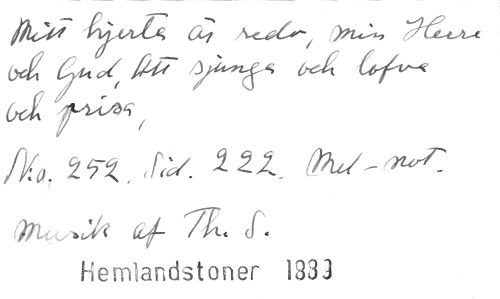 Mitt hjerta är redo, min Herre
och Gud, Att sjunga och lofva
och prisa,
N:o. 252. Sid. 222. Mel-not.
Musik af Th. S.
Hemlandstoner 1883